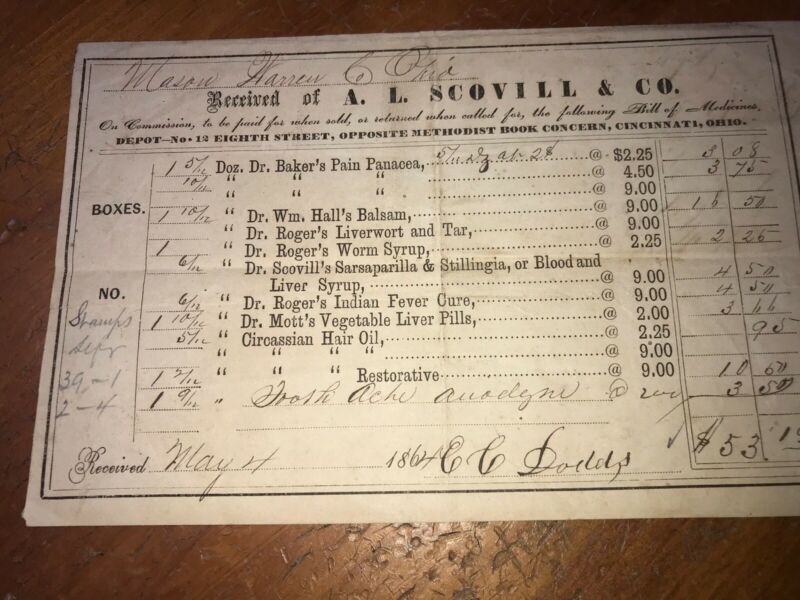 Mason Warren Co Ohio
Received of A. L. SCOVILL & CO.
On Commission, to be paid for when sold, or returned when called for, the following Bill of Medicines.
DEPOT—No. 12 EIGHTH STREET, OPPOSITE METHODIST BOOK CONCERN, CINCINNATI, OHIO.
BOXES.
1 5/12 Doz. Dr. Baker's Pain Panacea, @ $2.25 3 08
10/12 " " " @ 4.50 3 75
" " " @ 9.00
1 10/12 " Dr. Wm. Hall's Balsam, @ 9.00 16 50
" Dr. Roger's Liverwort and Tar, @ 9.00
1 " Dr. Roger's Worm Syrup, @ 2.25 2 25
6/12 " Dr. Scovill's Sarsaparilla & Stillingia, or Blood and
Liver Syrup, @ 9.00 4 50
NO.
6/12 " Dr. Roger's Indian Fever Cure, @ 9.00 4 50
Stamps
1 10/12 " Dr. Mott's Vegetable Liver Pills, @ 2.00 3 66
5/12 " Circassian Hair Oil, @ 2.25 95
" " " " @ 9.00
39-1
1 2/12 " " " Restorative @ 9.00 10 50
2-4
1 9/12 " Tooth Ache anodyne @ 3 50
$53.
Received May 4 1864 C C Dodds